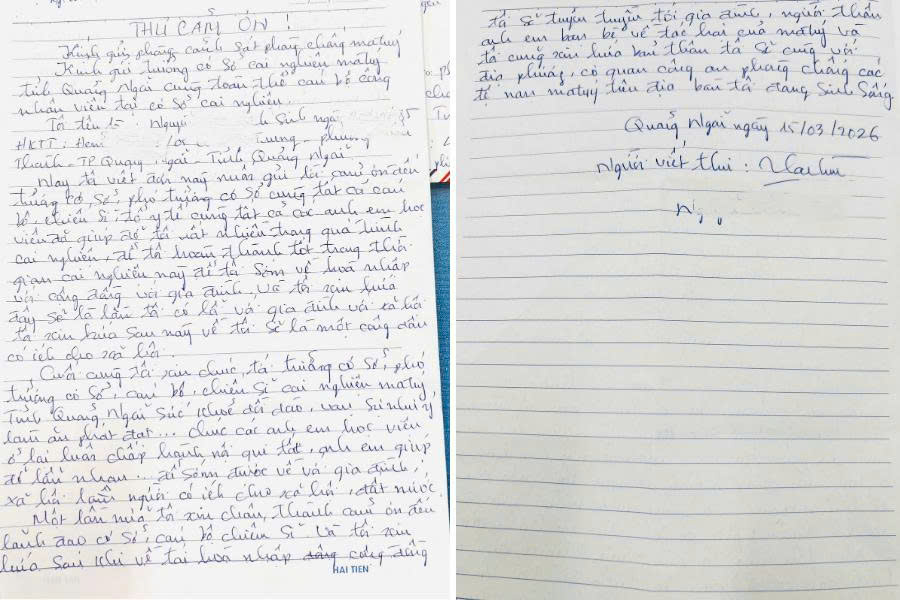 THƯ CẢM ƠN !
Kính gửi phòng cảnh sát phòng chống ma tuý
Kính gửi trưởng cơ sở cai nghiện ma tuý
tỉnh Quảng Ngãi cùng toàn thể cán bộ công
nhân viên tại cơ sở cai nghiện.
Tôi tên là Nguyễ Sinh ngày
HKTT: Trương
Thành - TP Quảng Ngãi - Tỉnh Quảng Ngãi
Nay tôi viết đơn này muốn gửi lời cảm ơn đến
trưởng cơ sở, phó trưởng cơ sở cùng tất cả cán
bộ, chiến sĩ tổ y tế cùng tất cả các anh em học
viên đã giúp đỡ tôi rất nhiều trong quá trình
cai nghiện, để tôi hoàn thành tốt trong thời
gian cai nghiện này để tôi sớm về hoà nhập
với cộng đồng với gia đình, và tôi xin hứa
đây sẽ là lần tôi có lỗi với gia đình và xã hội
tôi xin hứa sau này về tôi sẽ là một công dân
có ích cho xã hội.
Cuối cùng tôi xin chúc, tới trưởng cơ sở, phó
trưởng cơ sở, cán bộ, chiến sĩ cai nghiện ma tuý
Tỉnh Quảng Ngãi sức khoẻ dồi dào, vạn sự như ý
làm ăn phát đạt... chúc các anh em học viên
ở lại luôn chấp hành nội qui tốt, anh em giúp
đỡ lẫn nhau... để sớm được về với gia đình,
xã hội làm người có ích cho xã hội, đất nước.
Một lần nữa tôi xin chân thành cảm ơn đến
lãnh đạo cơ sở, cán bộ chiến sĩ. Và tôi xin
hứa sau khi về tái hoà nhập cộng đồng
HẢI TIẾN
tôi sẽ tuyên truyền tới gia đình, người thân
anh em bạn bè về tác hại của ma tuý và
tôi cũng xin hứa bản thân tôi sẽ cùng với
địa phương, cơ quan công an phòng chống các
tệ nạn ma tuý trên địa bàn tôi đang sinh sống
Quảng Ngãi ngày 15/03/2026
Người viết thư :